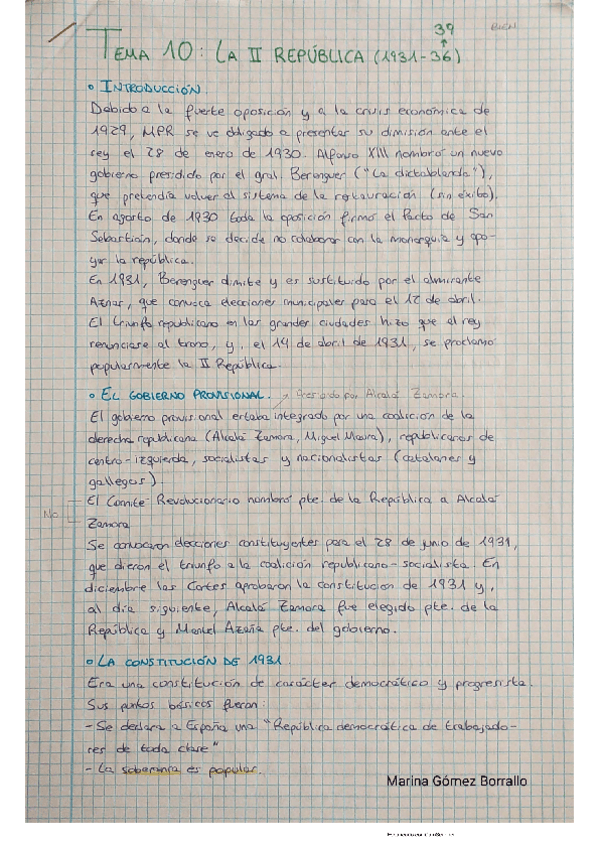 39 BIEN
TEMA 10: LA II REPÚBLICA (1931-36)
• INTRODUCCIÓN
Debido a la fuerte oposición y a la crisis económica de
1929, MPR se ve obligado a presentar su dimisión ante el
rey el 28 de enero de 1930. Alfonso XIII nombró un nuevo
gobierno presidido por el gral. Berenguer ("La dictablanda"),
que pretendía volver al sistema de la restauración (sin éxito).
En agosto de 1930 toda la oposición firmó el Pacto de San
Sebastián, donde se decide no colaborar con la monarquía y apo-
yar la república.
En 1931, Berenguer dimite y es sustituido por el almirante
Aznar, que convoca elecciones municipales para el 12 de abril.
El triunfo republicano en las grandes ciudades hizo que el rey
renunciase al trono, y, el 14 de abril de 1931, se proclamó
popularmente la II República.
• EL GOBIERNO PROVISIONAL. → Presidido por Alcalá Zamora.
El gobierno provisional estaba integrado por una coalición de la
derecha republicana (Alcalá Zamora, Miguel Maura), republicanos de
centro-izquierda, socialistas y nacionalistas (catalanes y
gallegos)
El Comité Revolucionario nombró pte. de la República a Alcalá
No
Zamora
Se convocaron elecciones constituyentes para el 28 de junio de 1931,
que dieron el triunfo a la coalición republicano-socialista. En
diciembre las Cortes aprobaron la constitución de 1931 y,
al día siguiente, Alcalá Zamora fue elegido pte. de la
República y Manuel Azaña pte. del gobierno.
• LA CONSTITUCIÓN DE 1931.
Era una constitución de carácter democrático y progresista.
Sus puntos básicos fueron:
- Se declara a España una "República democrática de trabajado-
res de toda clase"
- La soberanía es popular.
Marina Gómez Borrallo